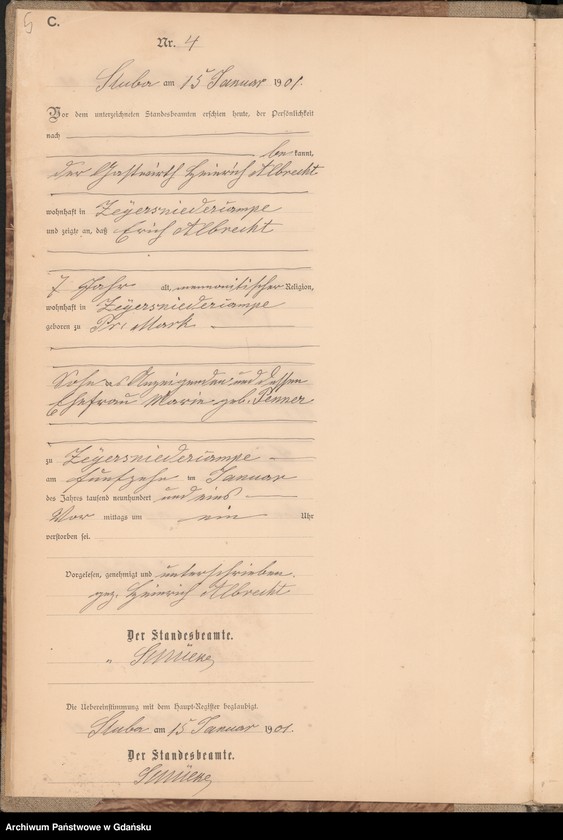 5
C.
Nr. 4
Stuba am 15 Januar 1901.
Vor dem unterzeichneten Standesbeamten erschien heute, der Persönlichkeit
nach
be kannt,
der Gastwirth Heinrich Albrecht
wohnhaft in Zeyersniedercampe
und zeigte an, daß Erich Albrecht
7 Jahr alt, mennonitischer Religion,
wohnhaft in Zeyersniedercampe
geboren zu Pr. Mark
Sohn des Anzeigenden und dessen
Ehefrau Marie geb. Penner
zu Zeyersniedercampe
am fünfzehn ten Januar
des Jahres tausend neunhundert und eins
Vor mittags um ein Uhr
verstorben sei.
Vorgelesen, genehmigt und unterschrieben.
gez. Heinrich Albrecht
Der Standesbeamte.
"
Die Uebereinstimmung mit dem Haupt-Register beglaubigt.
Stuba am 15 Januar 1901.
Der Standesbeamte.
Archiwum Państwowe w Gdańsku